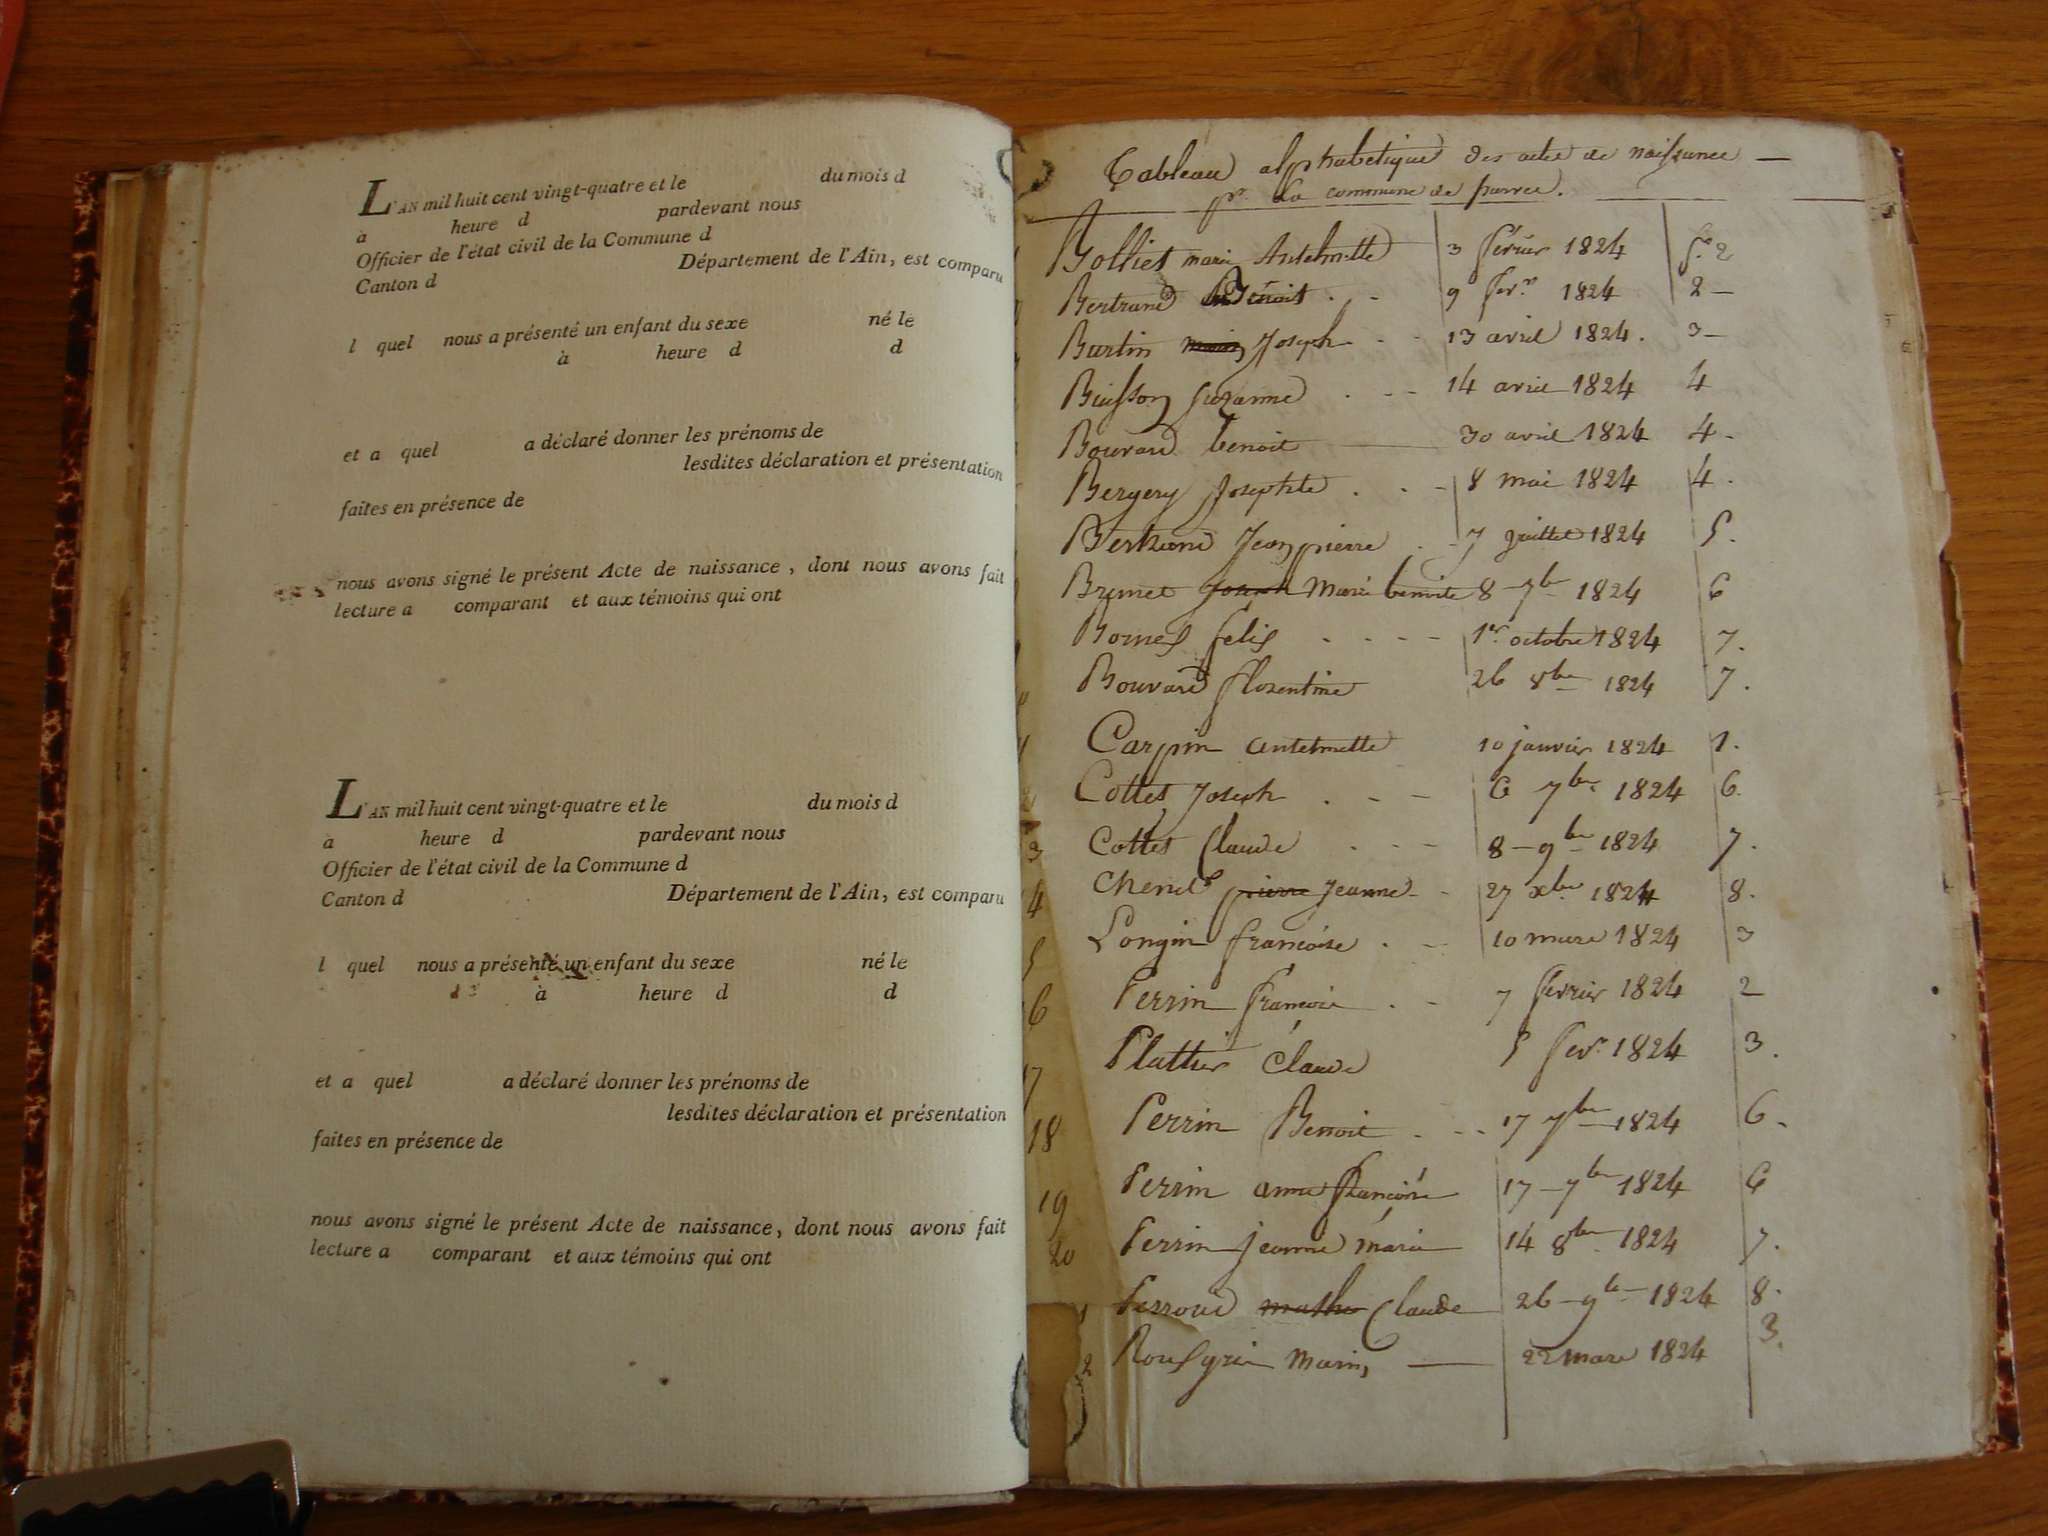 L'AN mil huit cent vingt-quatre et le du mois d
à heure d pardevant nous
Officier de l'état civil de la Commune d
Canton d Département de l'Ain, est comparu
l quel nous a présenté un enfant du sexe né le
à heure d d
et a quel a déclaré donner les prénoms de
lesdites déclaration et présentation
faites en présence de
nous avons signé le présent Acte de naissance, dont nous avons fait
lecture a comparant et aux témoins qui ont
L'AN mil huit cent vingt-quatre et le du mois d
à heure d pardevant nous
Officier de l'état civil de la Commune d
Canton d Département de l'Ain, est comparu
l quel nous a présenté un enfant du sexe né le
à heure d d
et a quel a déclaré donner les prénoms de
lesdites déclaration et présentation
faites en présence de
nous avons signé le présent Acte de naissance, dont nous avons fait
lecture a comparant et aux témoins qui ont
Tableau alphabetique des actes de naissance —
pr la commune de
Bolliet marie Antelmette 3 févrièr 1824 fo 2
Bertrand Benoit . - 9 fevr. 1824 2 —
Burtin Joseph - - 13 avril 1824. 3 —
Buisson Suzanne . - - 14 avril 1824 4
Bouvard benoit 30 avril 1824 4 -
Bergery Josephte . . - 8 mai 1824 4 .
Bertrand Jean pierre . - 7 Juillet 1824 5.
Brunet Joseph Marie benoite 8 - 7bre 1824 6
felix - - - - 1er octobre 1824 7.
Bouvard florentine 26 8bre 1824 7.
Carpin antelmette 10 janvier 1824 1.
Cottet Joseph . - - 6 7bre 1824 6.
3 Cottet Claude . - - 8 - 9bre 1824 7.
4 pierre Jeanne - - 27 xbre 1824 8.
5 Longin francoise . - 10 mars 1824 3
6 Perrin francois . - 7 février 1824 2
7 Plattier Claude 5 fevr. 1824 3.
18 Perrin Benoit . - - 17 7bre 1824 6.
19 Perrin anne francoise 17 - 7bre 1824 6
20 Perrin jeanne marie 14 8bre 1824 7.
Perroud Claude 26 - 9bre 1824 8.
2 Marie — 22 mars 1824 3.